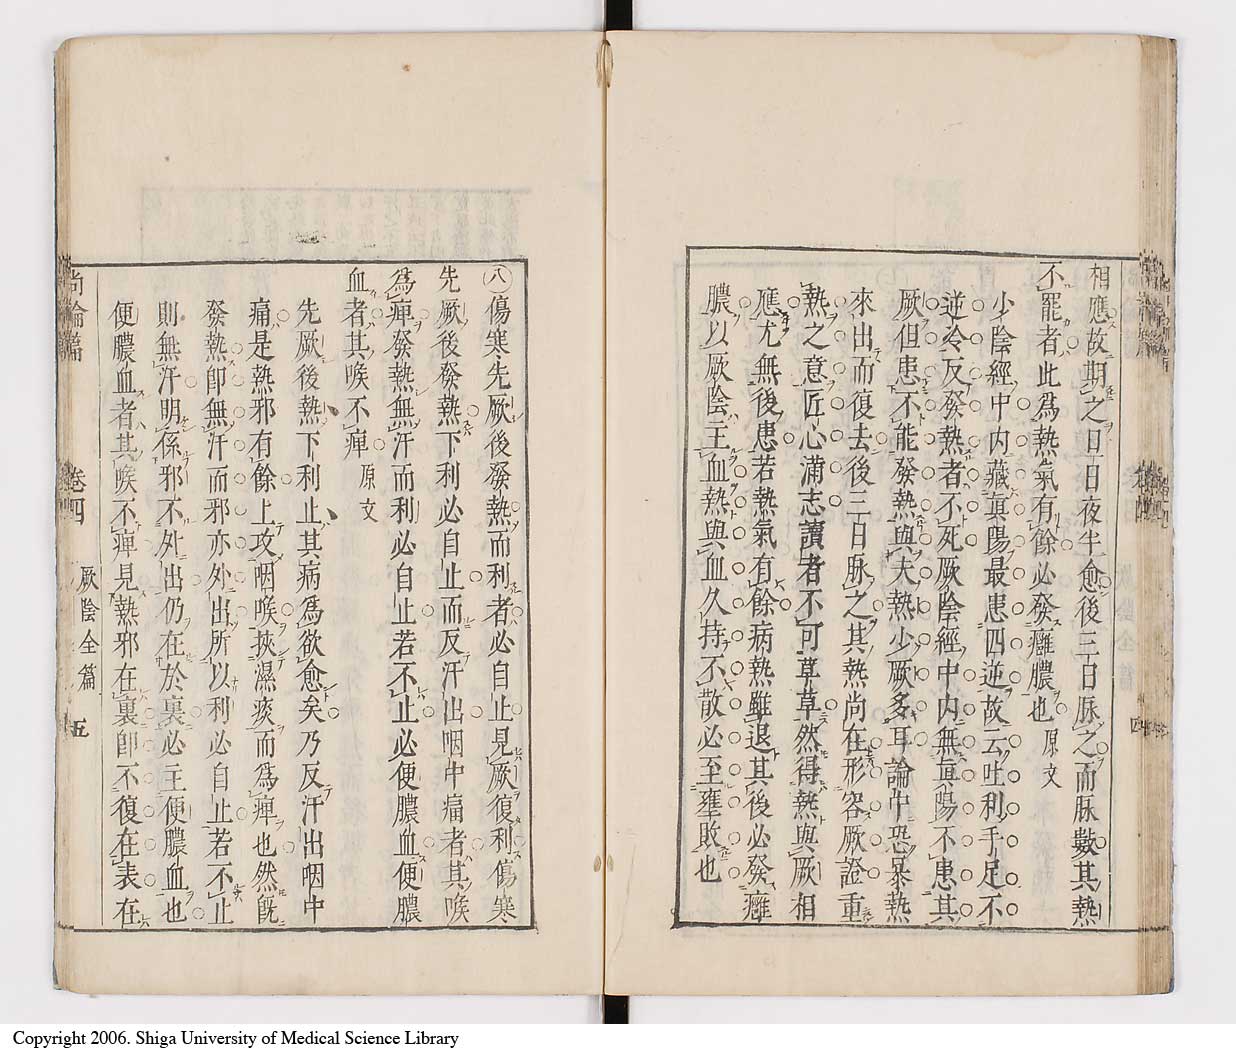 相應故期之日日夜半愈後三日脉之而脉數其熱
不罷者此爲熱氣有餘必發癰膿也 原文
少陰經中内藏眞陽最患四逆故云吐利手足不
逆冷反發熱者不死厥陰經中内無眞陽不患其
厥但患不能發熱與夫熱少厥多耳論中恐暴熱
來出而復去後三日脉之其熱尚在形容厥證重
熱之意匠心滿志讀者不可草草然得熱與厥相
應尤無後患若熱氣有餘病熱雖退其後必發癰
膿以厥陰主血熱與血久持不散必至壅敗也
八 傷寒先厥後發熱而利者必自止見厥復利傷寒
先厥後發熱下利必自止而反汗出咽中痛者其喉
爲痺發熱無汗而利必自止若不止必便膿血便膿
血者其喉不痺 原文
先厥後熱下利止其病爲欲愈矣乃反汗出咽中
痛是熱邪有餘上攻咽喉挾濕痰而爲痺也然既
發熱即無汗而邪亦外出所以利必自止若不止
則無汗明係邪不外出仍在於裏必主便膿血也
便膿血者其喉不痺見熱邪在裏即不復在表在
尚論篇 卷四 厥陰全篇 五
Copyright 2006. Shiga University of Medical Science Library